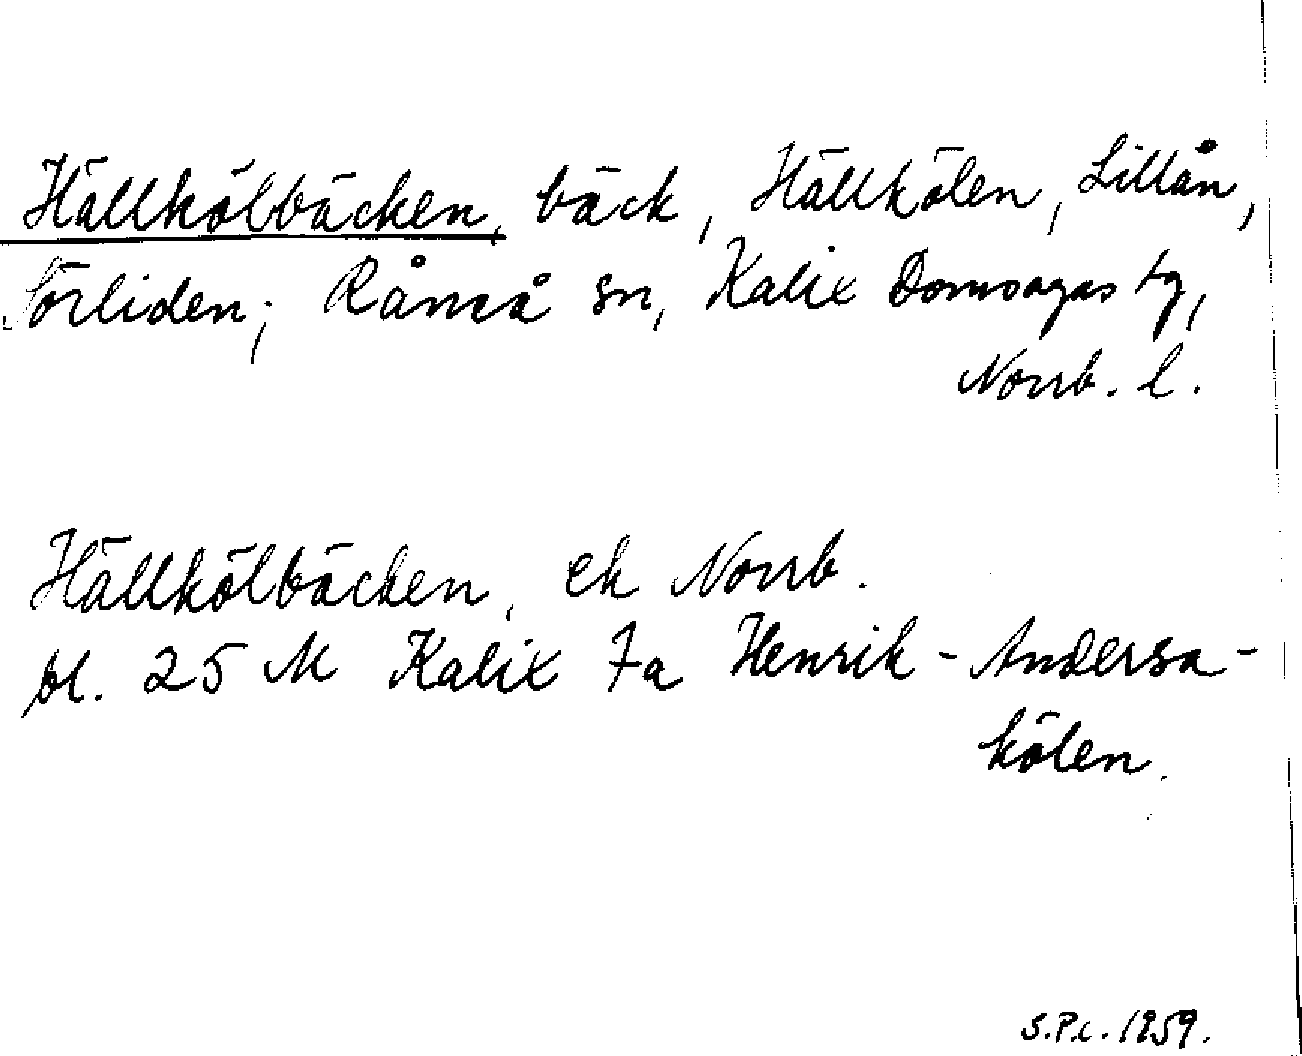 Hällkölbäcken, bäck, Hällkölen, Lillån,
Sörliden; Råneå sn, Kalix Domsagas tg,
Norrb. l.
Hällkölbäcken, ek Norrb.
bl. 25 M Kalix 7a Henrik-Andersa-
kölen.
S.P.c. 1959.